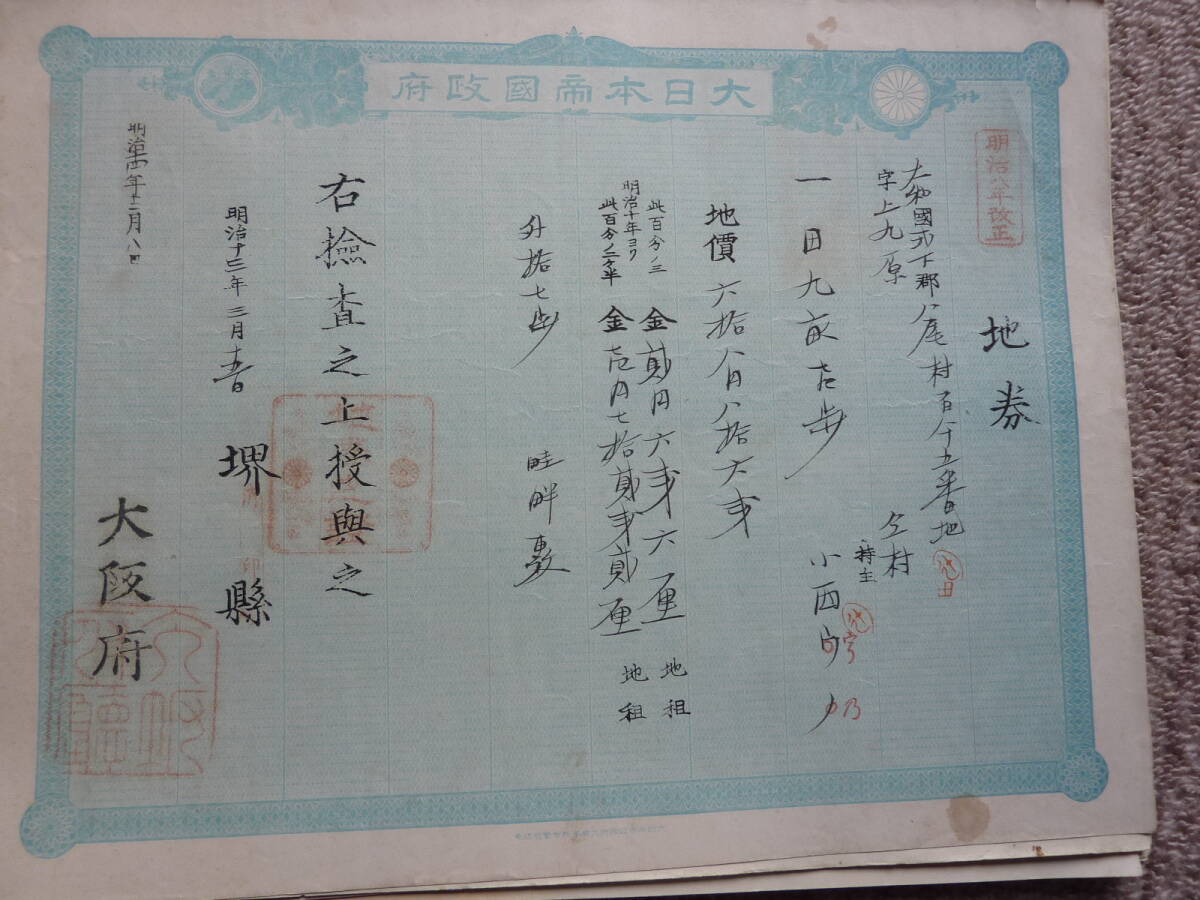 大日本帝國政府
明治八年改正
地券
大和國式下郡八尾村百八十五番地
字上九原
仝村
持主 小西
一田九畝壱歩
地價六拾八円八拾六銭
此百分ノ三 金貳円六銭六厘 地租
明治十年ヨリ
此百分ノ二ケ半 金壱円七拾貳銭貳厘 地租
外拾七歩 畦畔敷
右撿査之上授與之
明治十三年三月 堺縣
明治十四年十二月八日
大阪府